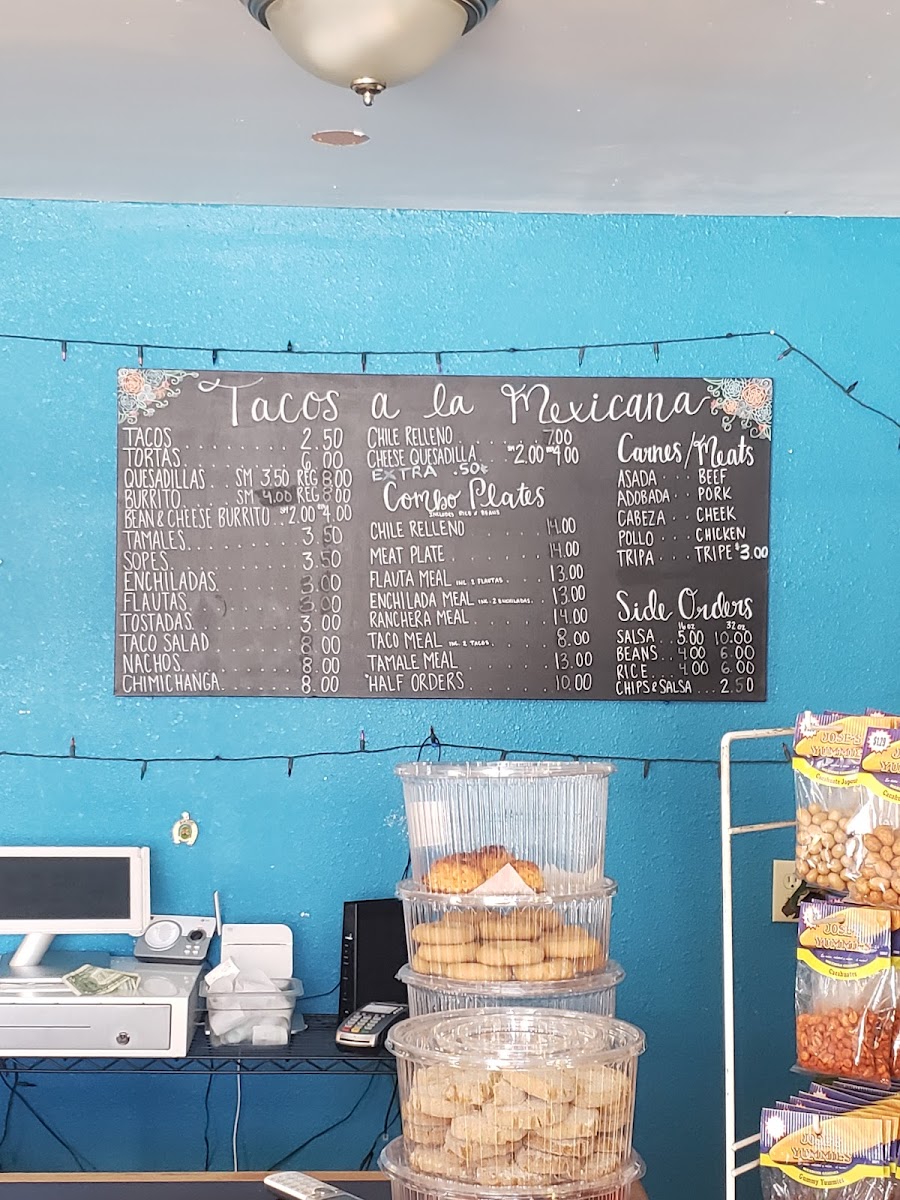 Tacos a la Mexicana
TACOS........ 2.50
TORTAS........ 6.00
QUESADILLAS.. SM 3.50 REG 8.00
BURRITO..... SM 4.00 REG 8.00
BEAN & CHEESE BURRITO.. SM 2.00 REG 4.00
TAMALES........ 3.50
SOPES........ 3.50
ENCHILADAS....... 3.00
FLAUTAS........ .00
TOSTADAS........ 3.00
TACO SALAD ...... 8.00
NACHOS........ 8.00
CHIMICHANGA........ 8.00
CHILE RELLENO........ 7.00
CHEESE QUESADILLA.... SM 2.00 REG 4.00
EXTRA .50¢
Combo Plates
INCLUDES RICE & BEANS
CHILE RELLENO ...... 14.00
MEAT PLATE ...... 14.00
FLAUTA MEAL INC. 2 FLAUTAS .... 13.00
ENCHILADA MEAL INC. 2 ENCHILADAS .. 13.00
RANCHERA MEAL ...... 14.00
TACO MEAL INC. 2 TACOS .... 8.00
TAMALE MEAL ...... 13.00
HALF ORDERS ...... 10.00
Carnes/Meats
ASADA ... BEEF
ADOBADA .. PORK
CABEZA ... CHEEK
POLLO ... CHICKEN
TRIPA ... TRIPE $3.00
Side Orders
16 oz 32 oz
SALSA .. 5.00 10.00
BEANS.. 4.00 6.00
RICE... 4.00 6.00
CHIPS & SALSA ... 2.50
JOSE'S
YUMMIES
$1.29
JOSE'S
YUMMIES
Cacahuates
YUMMIES
Gummy Yummies